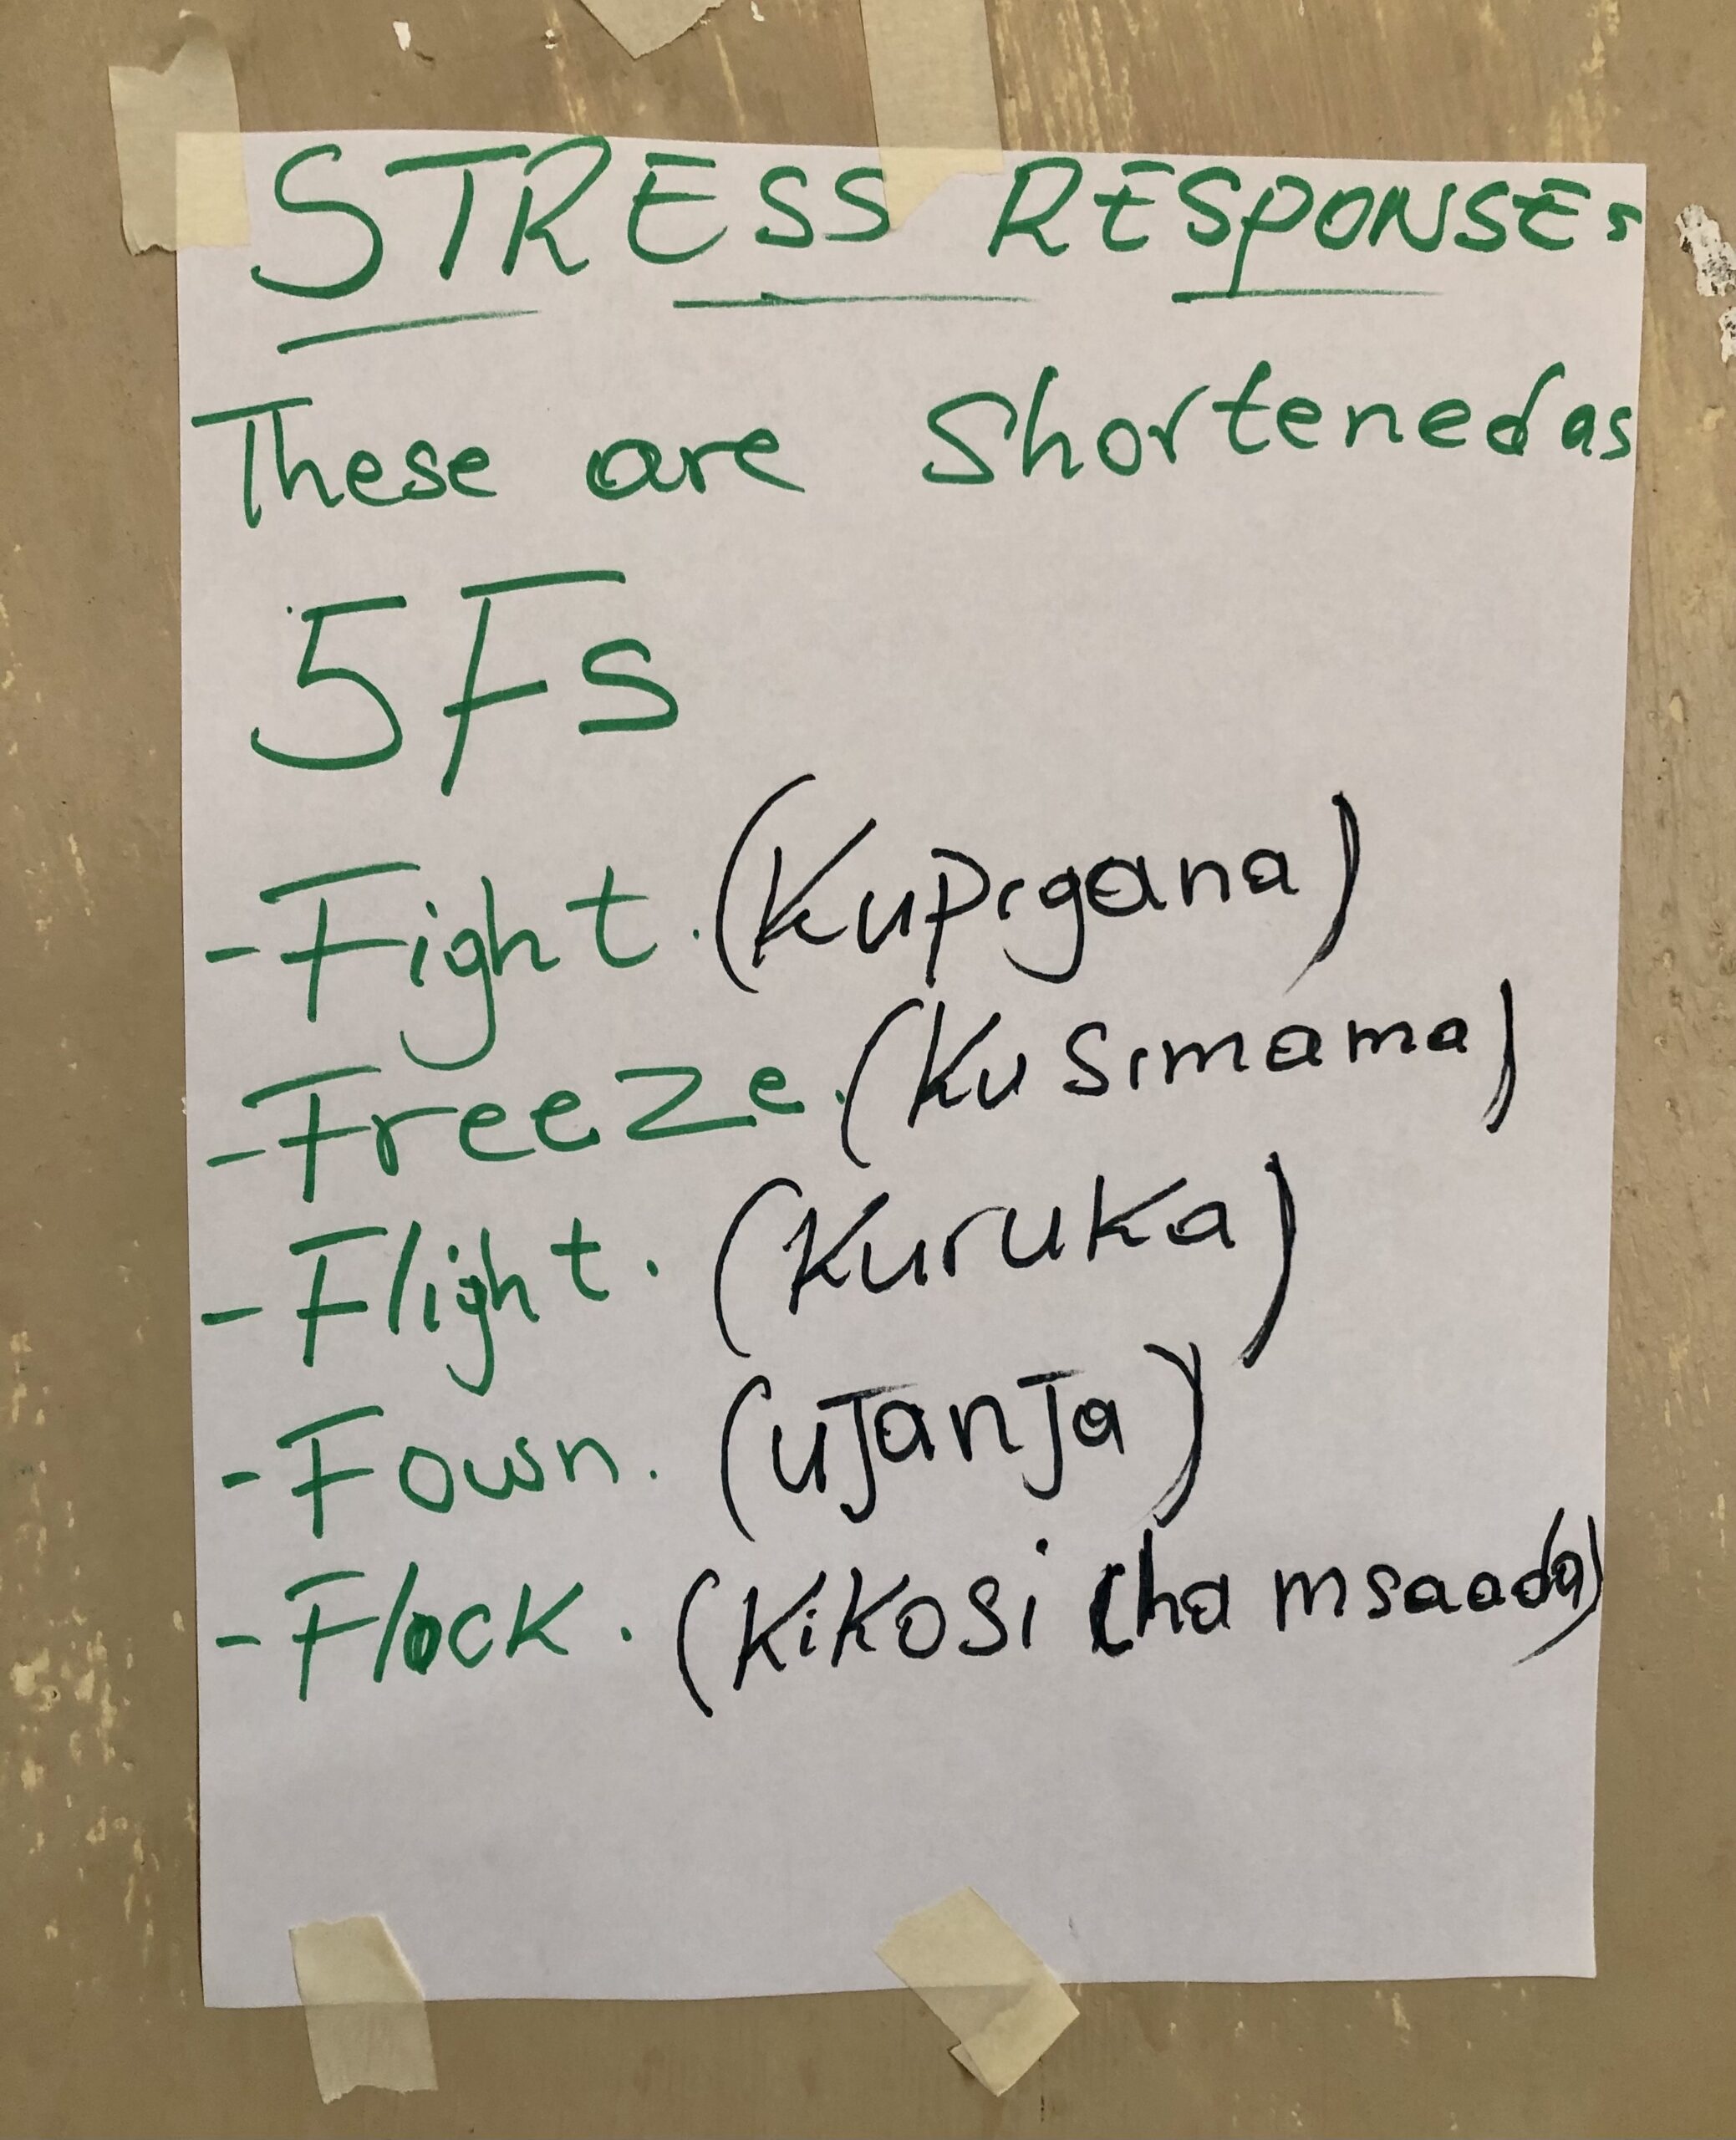 STRESS RESPONSES
These are Shortened as
5Fs
- Fight. (Kupigana)
- Freeze. (Kusimama)
- Flight. (Kuruka)
- Fown. (UJanJa)
- Flock. (KiKosi Cha msaada)